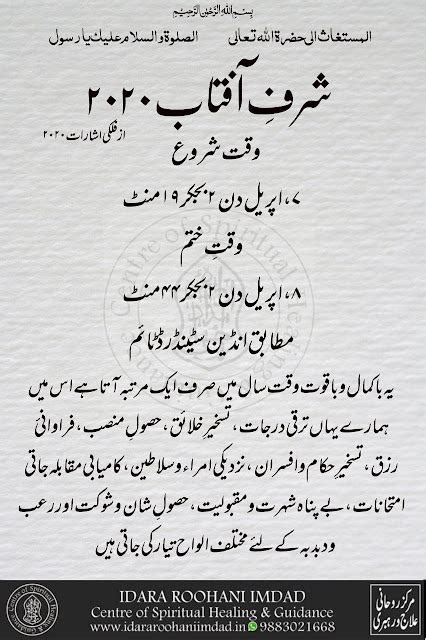 بِسْمِ اللهِ الرَّحْمٰنِ الرَّحِيْمِ
المستغاث الی حضرۃ اللہ تعالی الصلوۃ والسلام علیک یا رسول
شرفِ آفتاب ۲۰۲۰
از فلکی اشارات ۲۰۲۰
وقت شروع
۷، اپریل دن ۲ بجکر ۱۹ منٹ
وقتِ ختم
۸، اپریل دن ۲ بجکر ۴۴ منٹ
مطابق انڈین سٹینڈرڈ ٹائم
یہ باکمال و باقوت وقت سال میں صرف ایک مرتبہ آتا ہے اس میں
ہمارے یہاں ترقی درجات، تسخیرِ خلائق، حصولِ منصب، فراوانیٔ
رزق، تسخیرِ حکام و افسران، نزدیکی امراء و سلاطین، کامیابی مقابلہ جاتی
امتحانات، بے پناہ شہرت و مقبولیت، حصولِ شان و شوکت اور رعب
ودبدبہ کے لئے مختلف الواح تیار کی جاتی ہیں
IDARA ROOHANI IMDAD
Centre of Spiritual Healing & Guidance
www.idararoohaniimdad.in 9883021668
مرکز روحانی
علاج ورہبری
Centre of Spiritual Healing